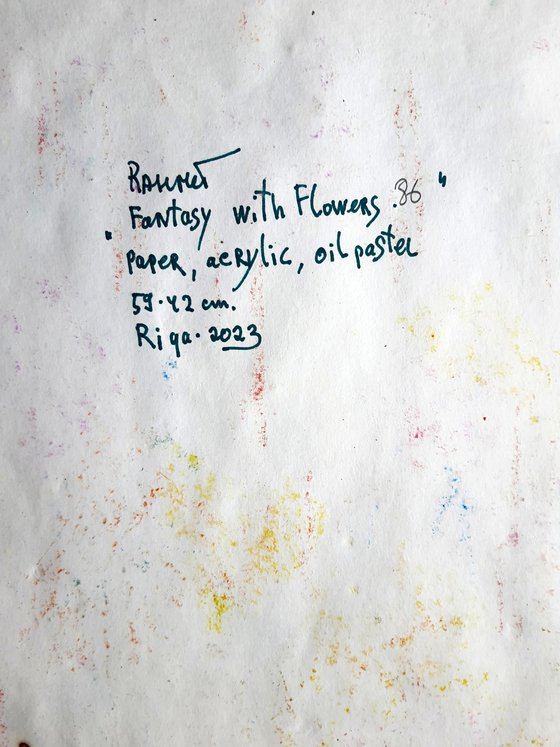 "Fantasy with Flowers .86"
paper, acrylic, oil pastel
59·42 cm.
Riga·2023